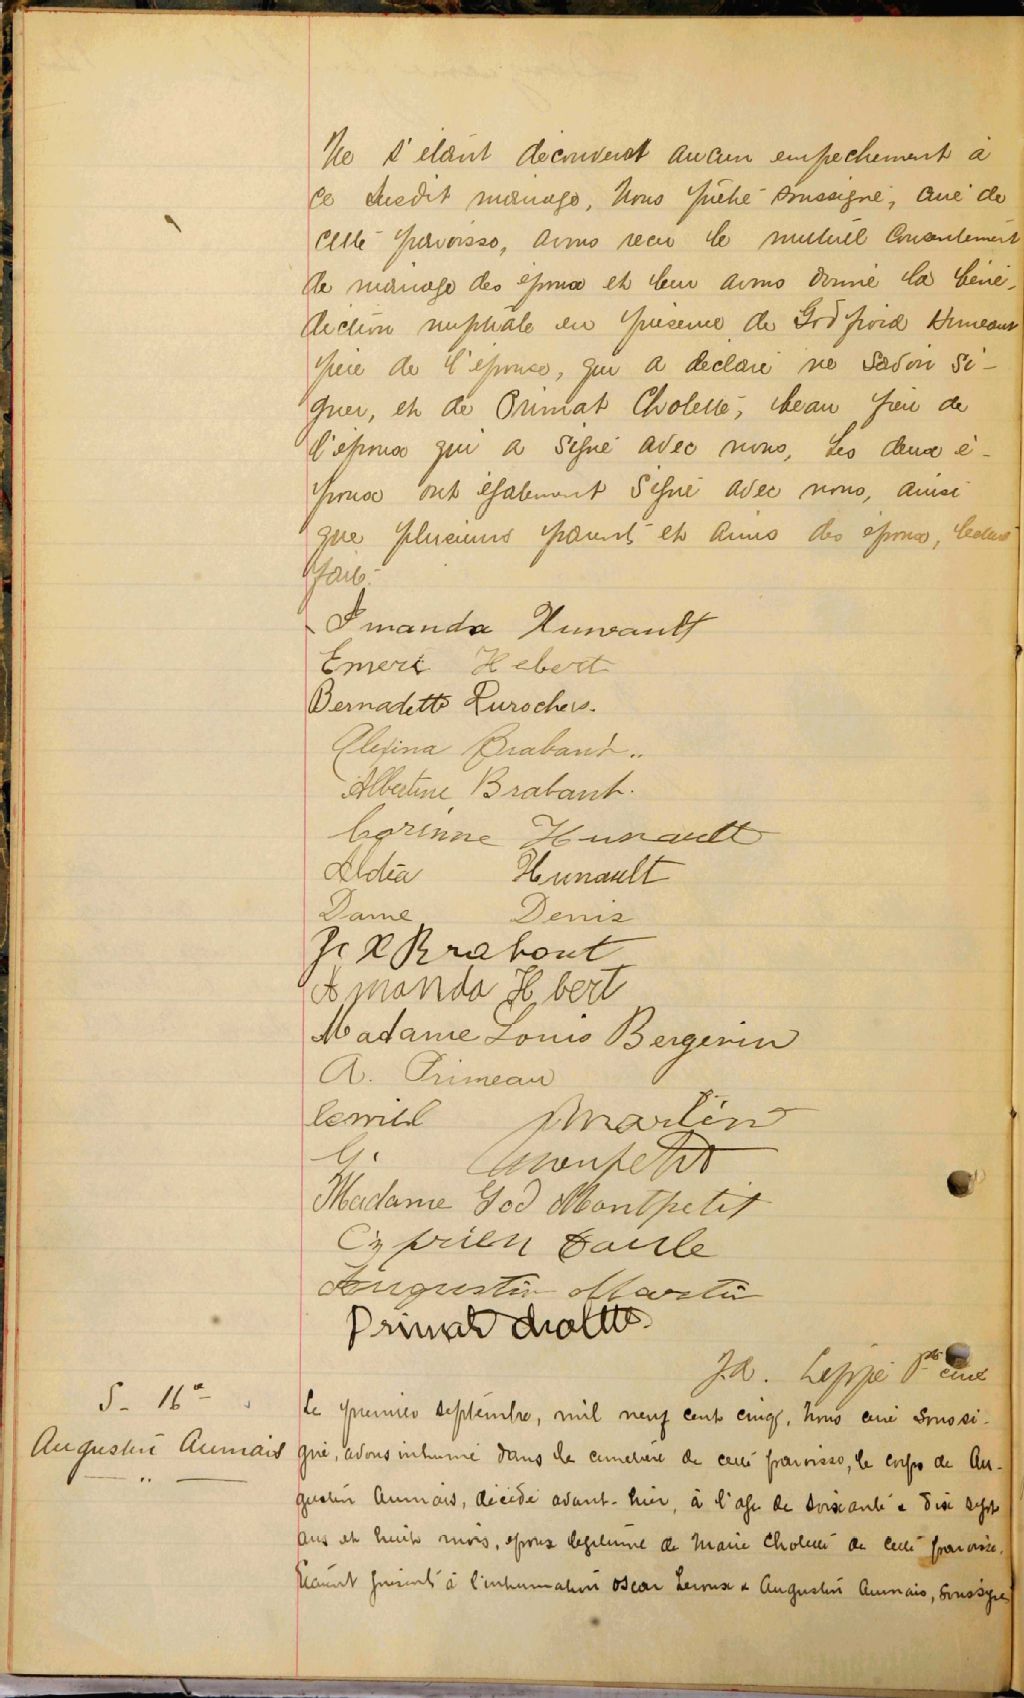 Ne s'étant découvert aucun empechement à
ce susdit mariage, Nous prêtre soussigné, curé de
cette paroisse, avons recu le mutuel consentement
de mariage des époux et leur avons donné la béné-
diction nuptiale en présence de Godfroid Huneault
père de l'épouse, qui a déclaré ne savoir si-
gner, et de Primat Cholette, beau père de
l'époux qui a signé avec nous, Les deux é-
poux ont également signé avec nous, ainsi
que plusieurs parents et amis des époux, lecture
faite.
Imanda Huneault
Emeri Hebert
Bernadette Durochers.
Alexina Brabant..
Albertine Brabant.
Corinne Hunault
Aldéa Hunault
Dame Denis
F X Brabant
Amanda Hbert
Madame Louis Bergevin
A. Primeau
Martin
G. Monpetit
Madame God Montpetit
Cyprien
Augustin Martin
Primat cholette.
J.A. Leppé Ptre curé
S- 16e
Augustin Aumais
Le premier septembre, mil neuf cent cinq, Nous curé soussi-
gné, avons inhumé dans le cimetière de cette paroisse, le corps de Au-
gustin Aumais, décédé avant-hier, à l'age de soixante & dix sept
ans et huit mois, époux légitime de Marie Cholette de cette paroisse.
Etaient présents à l'inhumation Oscar Leroux & Augustin Aumais, soussignés